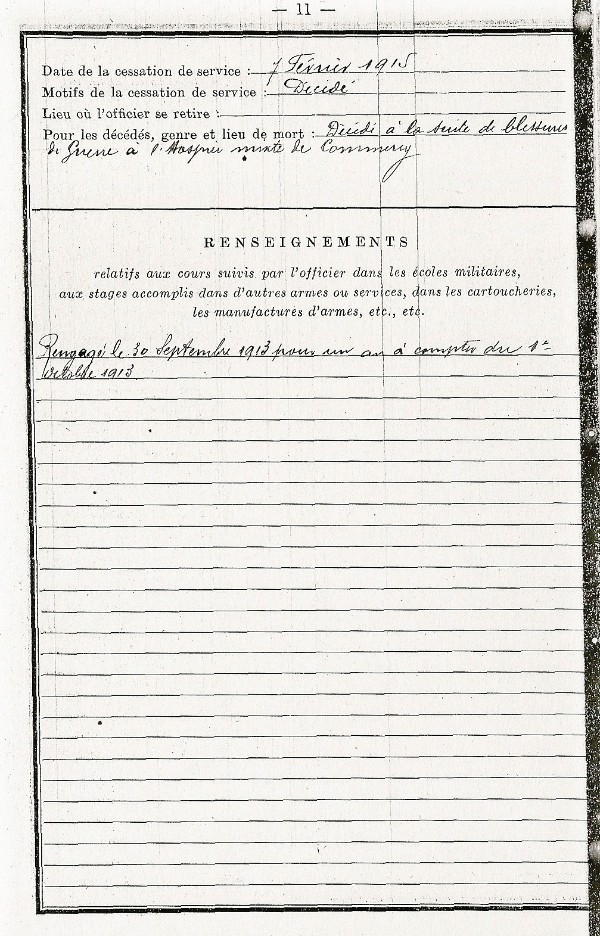 — 11 —
Date de la cessation de service : 7 Février 1915
Motifs de la cessation de service : Décédé
Lieu où l'officier se retire :
Pour les décédés, genre et lieu de mort : Décédé à la suite de blessures
de Guerre à l'Hospice mixte de Commercy
RENSEIGNEMENTS
relatifs aux cours suivis par l'officier dans les écoles militaires,
aux stages accomplis dans d'autres armes ou services, dans les cartoucheries,
les manufactures d'armes, etc., etc.
Rengagé le 30 Septembre 1913 pour un an à compter du 1er
Octobre 1913